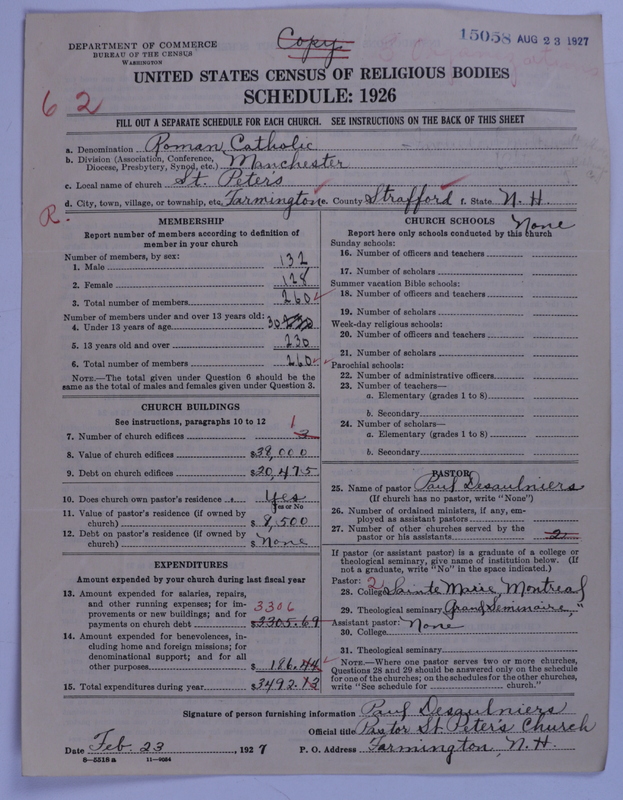 DEPARTMENT OF COMMERCE
BUREAU OF THE CENSUS
WASHINGTON
Copy
15058 AUG 23 1927
UNITED STATES CENSUS OF RELIGIOUS BODIES
SCHEDULE: 1926
62
FILL OUT A SEPARATE SCHEDULE FOR EACH CHURCH. SEE INSTRUCTIONS ON THE BACK OF THIS SHEET
a. Denomination Roman Catholic
b. Division (Association, Conference, Diocese, Presbytery, Synod, etc.) Manchester
c. Local name of church St. Peter's
d. City, town, village, or township, etc. Farmington e. County Strafford f. State N. H.
R.
MEMBERSHIP
Report number of members according to definition of
member in your church
Number of members, by sex:
1. Male 132
2. Female 128
3. Total number of members 260
Number of members under and over 13 years old:
4. Under 13 years of age 30
5. 13 years old and over 230
6. Total number of members 260
NOTE.—The total given under Question 6 should be the
same as the total of males and females given under Question 3.
CHURCH BUILDINGS
See instructions, paragraphs 10 to 12
7. Number of church edifices 3 1
8. Value of church edifices $38,000
9. Debt on church edifices $20,475
10. Does church own pastor's residence Yes
Yes or No
11. Value of pastor's residence (if owned by
church) $8,500
12. Debt on pastor's residence (if owned by
church) $None
EXPENDITURES
Amount expended by your church during last fiscal year
13. Amount expended for salaries, repairs,
and other running expenses; for im-
provements or new buildings; and for
payments on church debt $3305.69 3306
14. Amount expended for benevolences, in-
cluding home and foreign missions; for
denominational support; and for all
other purposes $186.44
15. Total expenditures during year $3492.13
CHURCH SCHOOLS
None
Report here only schools conducted by this church
Sunday schools:
16. Number of officers and teachers
17. Number of scholars
Summer vacation Bible schools:
18. Number of officers and teachers
19. Number of scholars
Week-day religious schools:
20. Number of officers and teachers
21. Number of scholars
Parochial schools:
22. Number of administrative officers
23. Number of teachers—
a. Elementary (grades 1 to 8)
b. Secondary
24. Number of scholars—
a. Elementary (grades 1 to 8)
b. Secondary
PASTOR
25. Name of pastor Paul Desaulniers
(If church has no pastor, write "None")
26. Number of ordained ministers, if any, em-
ployed as assistant pastors
27. Number of other churches served by the
pastor or his assistants 2
If pastor (or assistant pastor) is a graduate of a college or
theological seminary, give name of institution below. (If
not a graduate, write "No" in the space indicated.)
Pastor: 2
28. College Sainte Marie, Montreal
29. Theological seminary Grand Seminaire, "
Assistant pastor: None
30. College
31. Theological seminary
NOTE.—Where one pastor serves two or more churches,
Questions 28 and 29 should be answered only on the schedule
for one of the churches; on the schedules for the other churches,
write "See schedule for church."
Signature of person furnishing information Paul Desaulniers
Official title Pastor St. Peter's Church
Date Feb. 23, 1927 P. O. Address Farmington, N. H.
8—5518a 11—9054